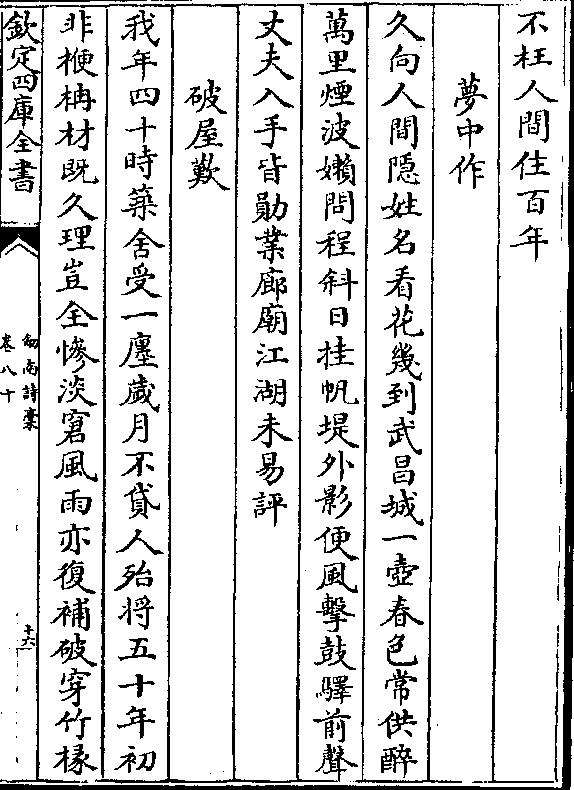 不枉人間住百年
夢中作
久向人間隠姓名看花幾到武昌城一壺春色常供醉
萬里煙波嬾問程斜日挂帆堤外影便風擊鼓驛前聲
丈夫入手皆勛業廊廟江湖未易評
破屋歎
我年四十時築舍受一廛歲月不貸人殆將五十年初
非楩柟材既久理豈全慘淡窘風雨亦復補破穿竹椽
欽定四庫全書
劍南詩稾
卷八十
十六